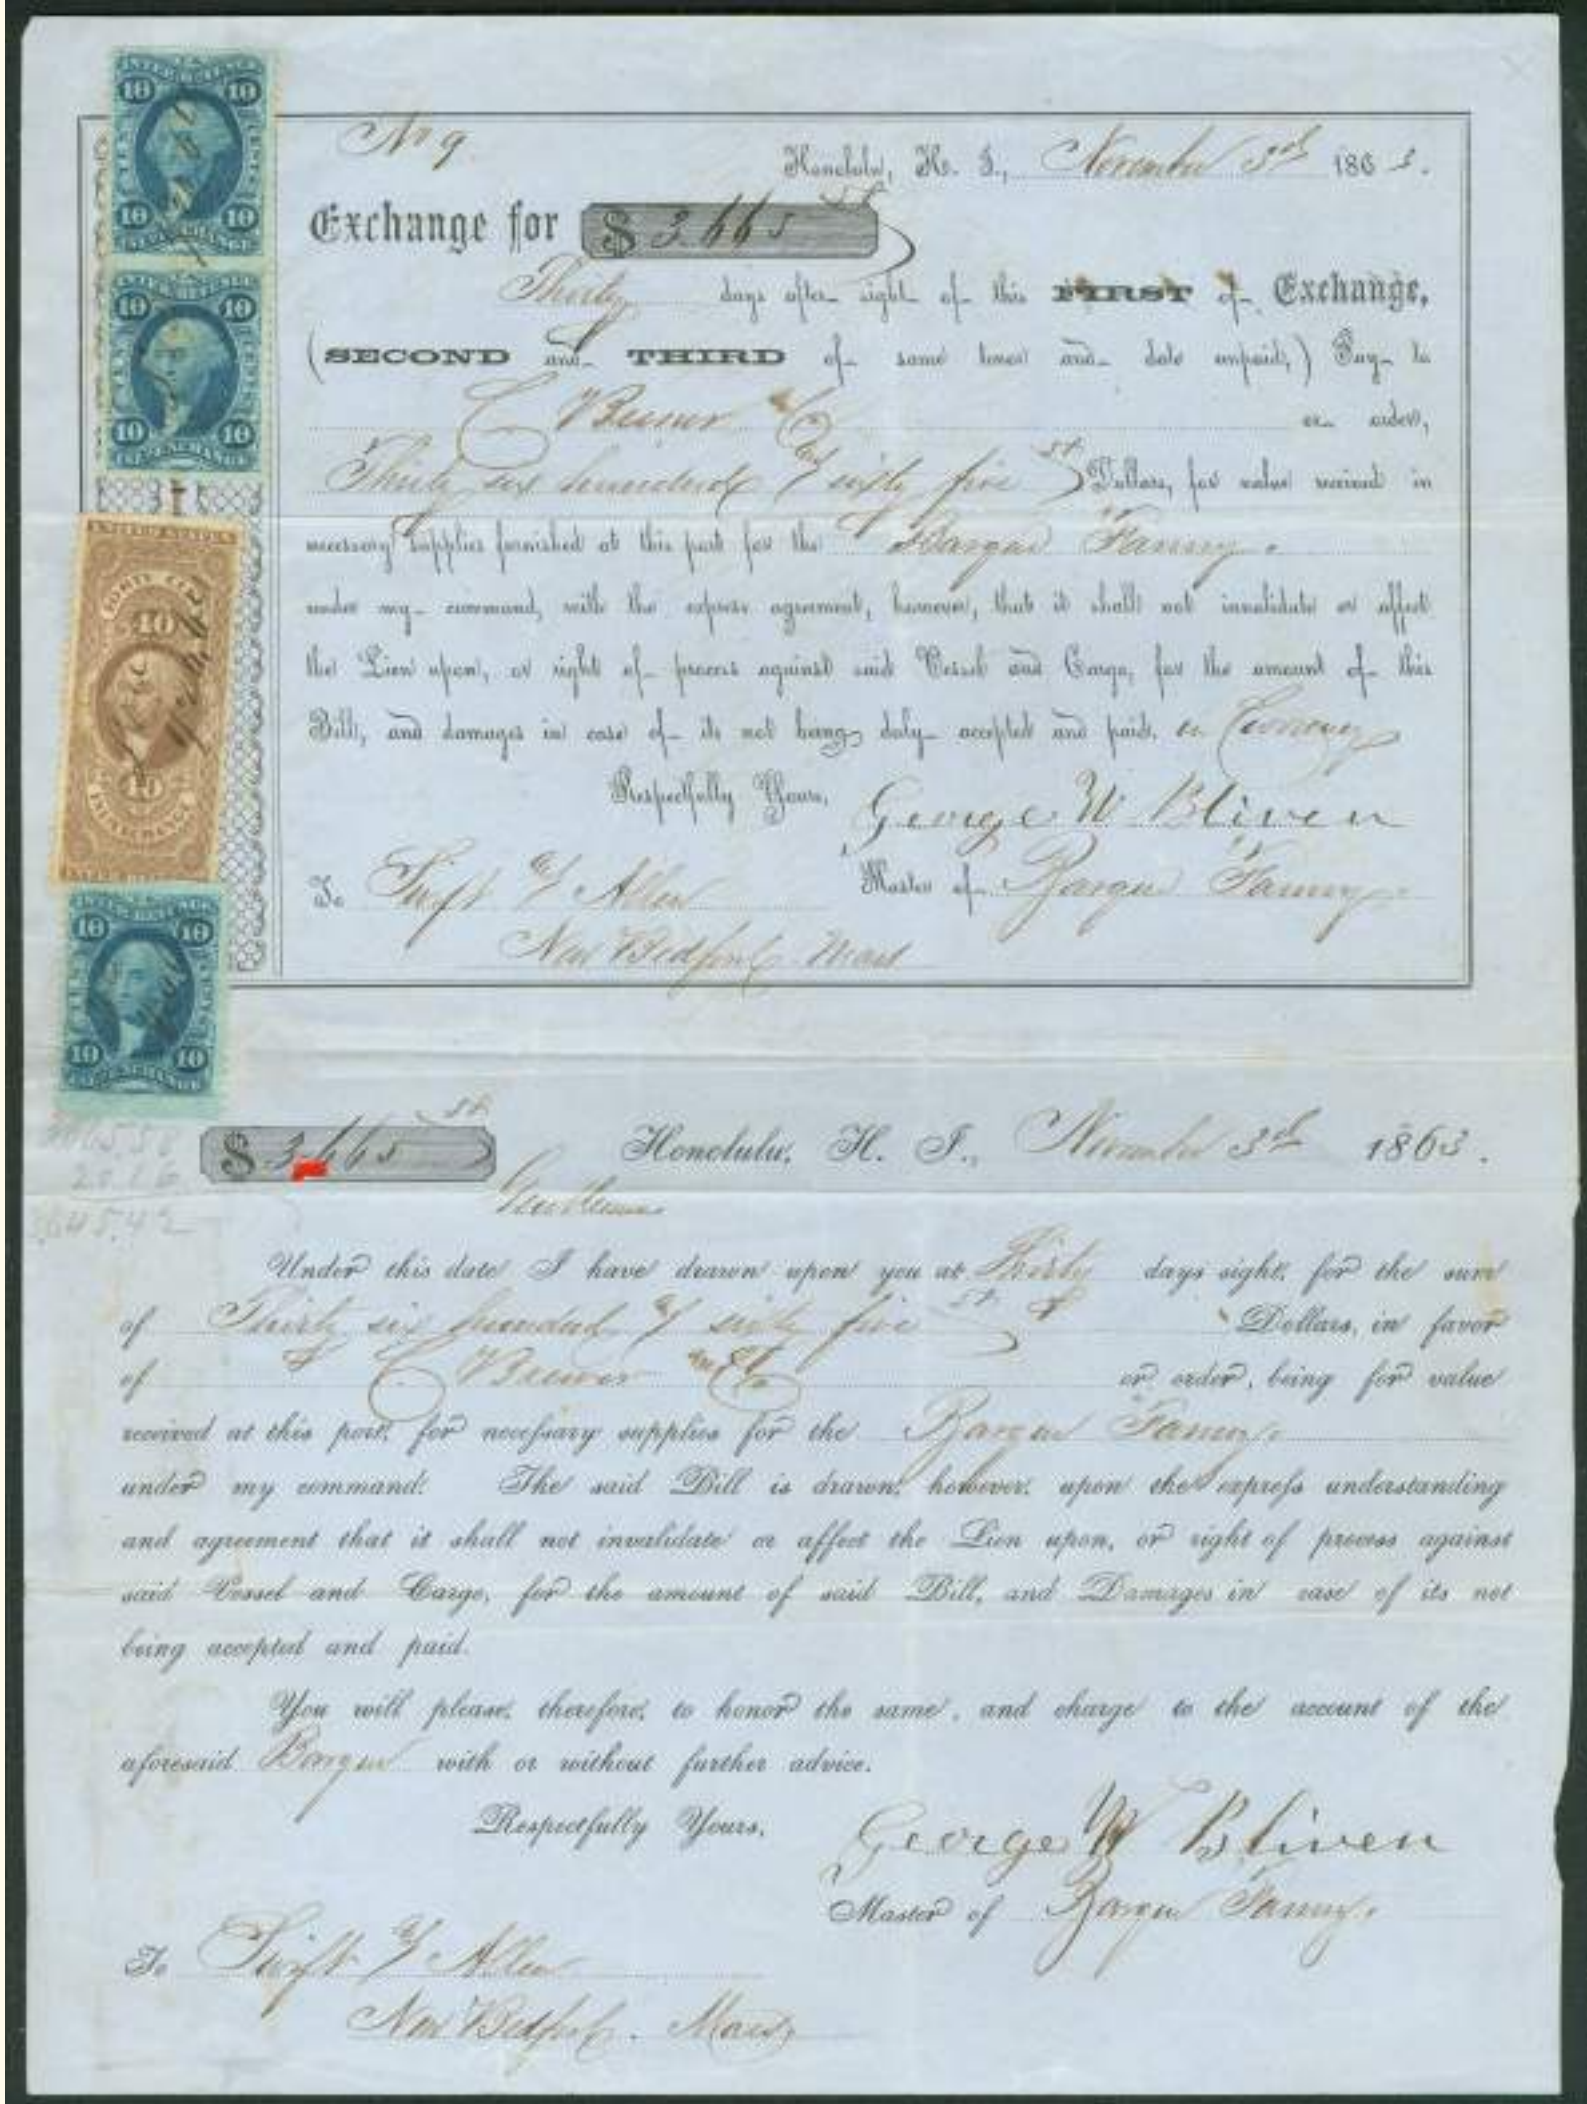 INTER. REVENUE
10 10
TEN CENTS
10 10
INLAND EXCHANGE
INTER. REVENUE
10 10
TEN CENTS
10 10
INLAND EXCHANGE
UNITED STATES
FORTY CENTS
40
40
INLAND EXCHANGE
INTER. REVENUE
INTER. REVENUE
10 10
TEN CENTS
10 10
INLAND EXCHANGE
No 9.
Honolulu, H. I., November 3rd 1863.
Exchange for $ 3.665 58
Thirty days after sight of this FIRST of Exchange,
(SECOND and THIRD of same tenor and date unpaid,) Pay to
C Brewer & Co or order,
Thirty six hundred & sixty five 58 Dollars, for value received in
necessary supplies furnished at this port for the "Barque Fanny"
under my command, with the express agreement, however, that it shall not invalidate or affect
the Lien upon, or right of process against said Vessel and Cargo, for the amount of this
Bill, and damages in case of its not being duly accepted and paid. in Currency
Respectfully Yours, George W Bliven
To Swift & Allen Master of Barque Fanny.
New Bedford Mass
3665.58
20.16
3645.42
$ 3.665 58 Honolulu, H. I., November 3rd 1863.
Gentlemen
Under this date I have drawn upon you at Thirty days sight, for the sum
of Thirty six hundred & sixty five 58 Dollars, in favor
of C. Brewer & Co or order, being for value
received at this port, for necessary supplies for the Barque "Fanny"
under my command. The said Bill is drawn, however, upon the express understanding
and agreement that it shall not invalidate or affect the Lien upon, or right of process against
said Vessel and Cargo, for the amount of said Bill, and Damages in case of its not
being accepted and paid.
You will please, therefore, to honor the same, and charge to the account of the
aforesaid Barque with or without further advice.
Respectfully Yours, George W Bliven
Master of Barque Fanny.
To Swift & Allen
New Bedford. Mass